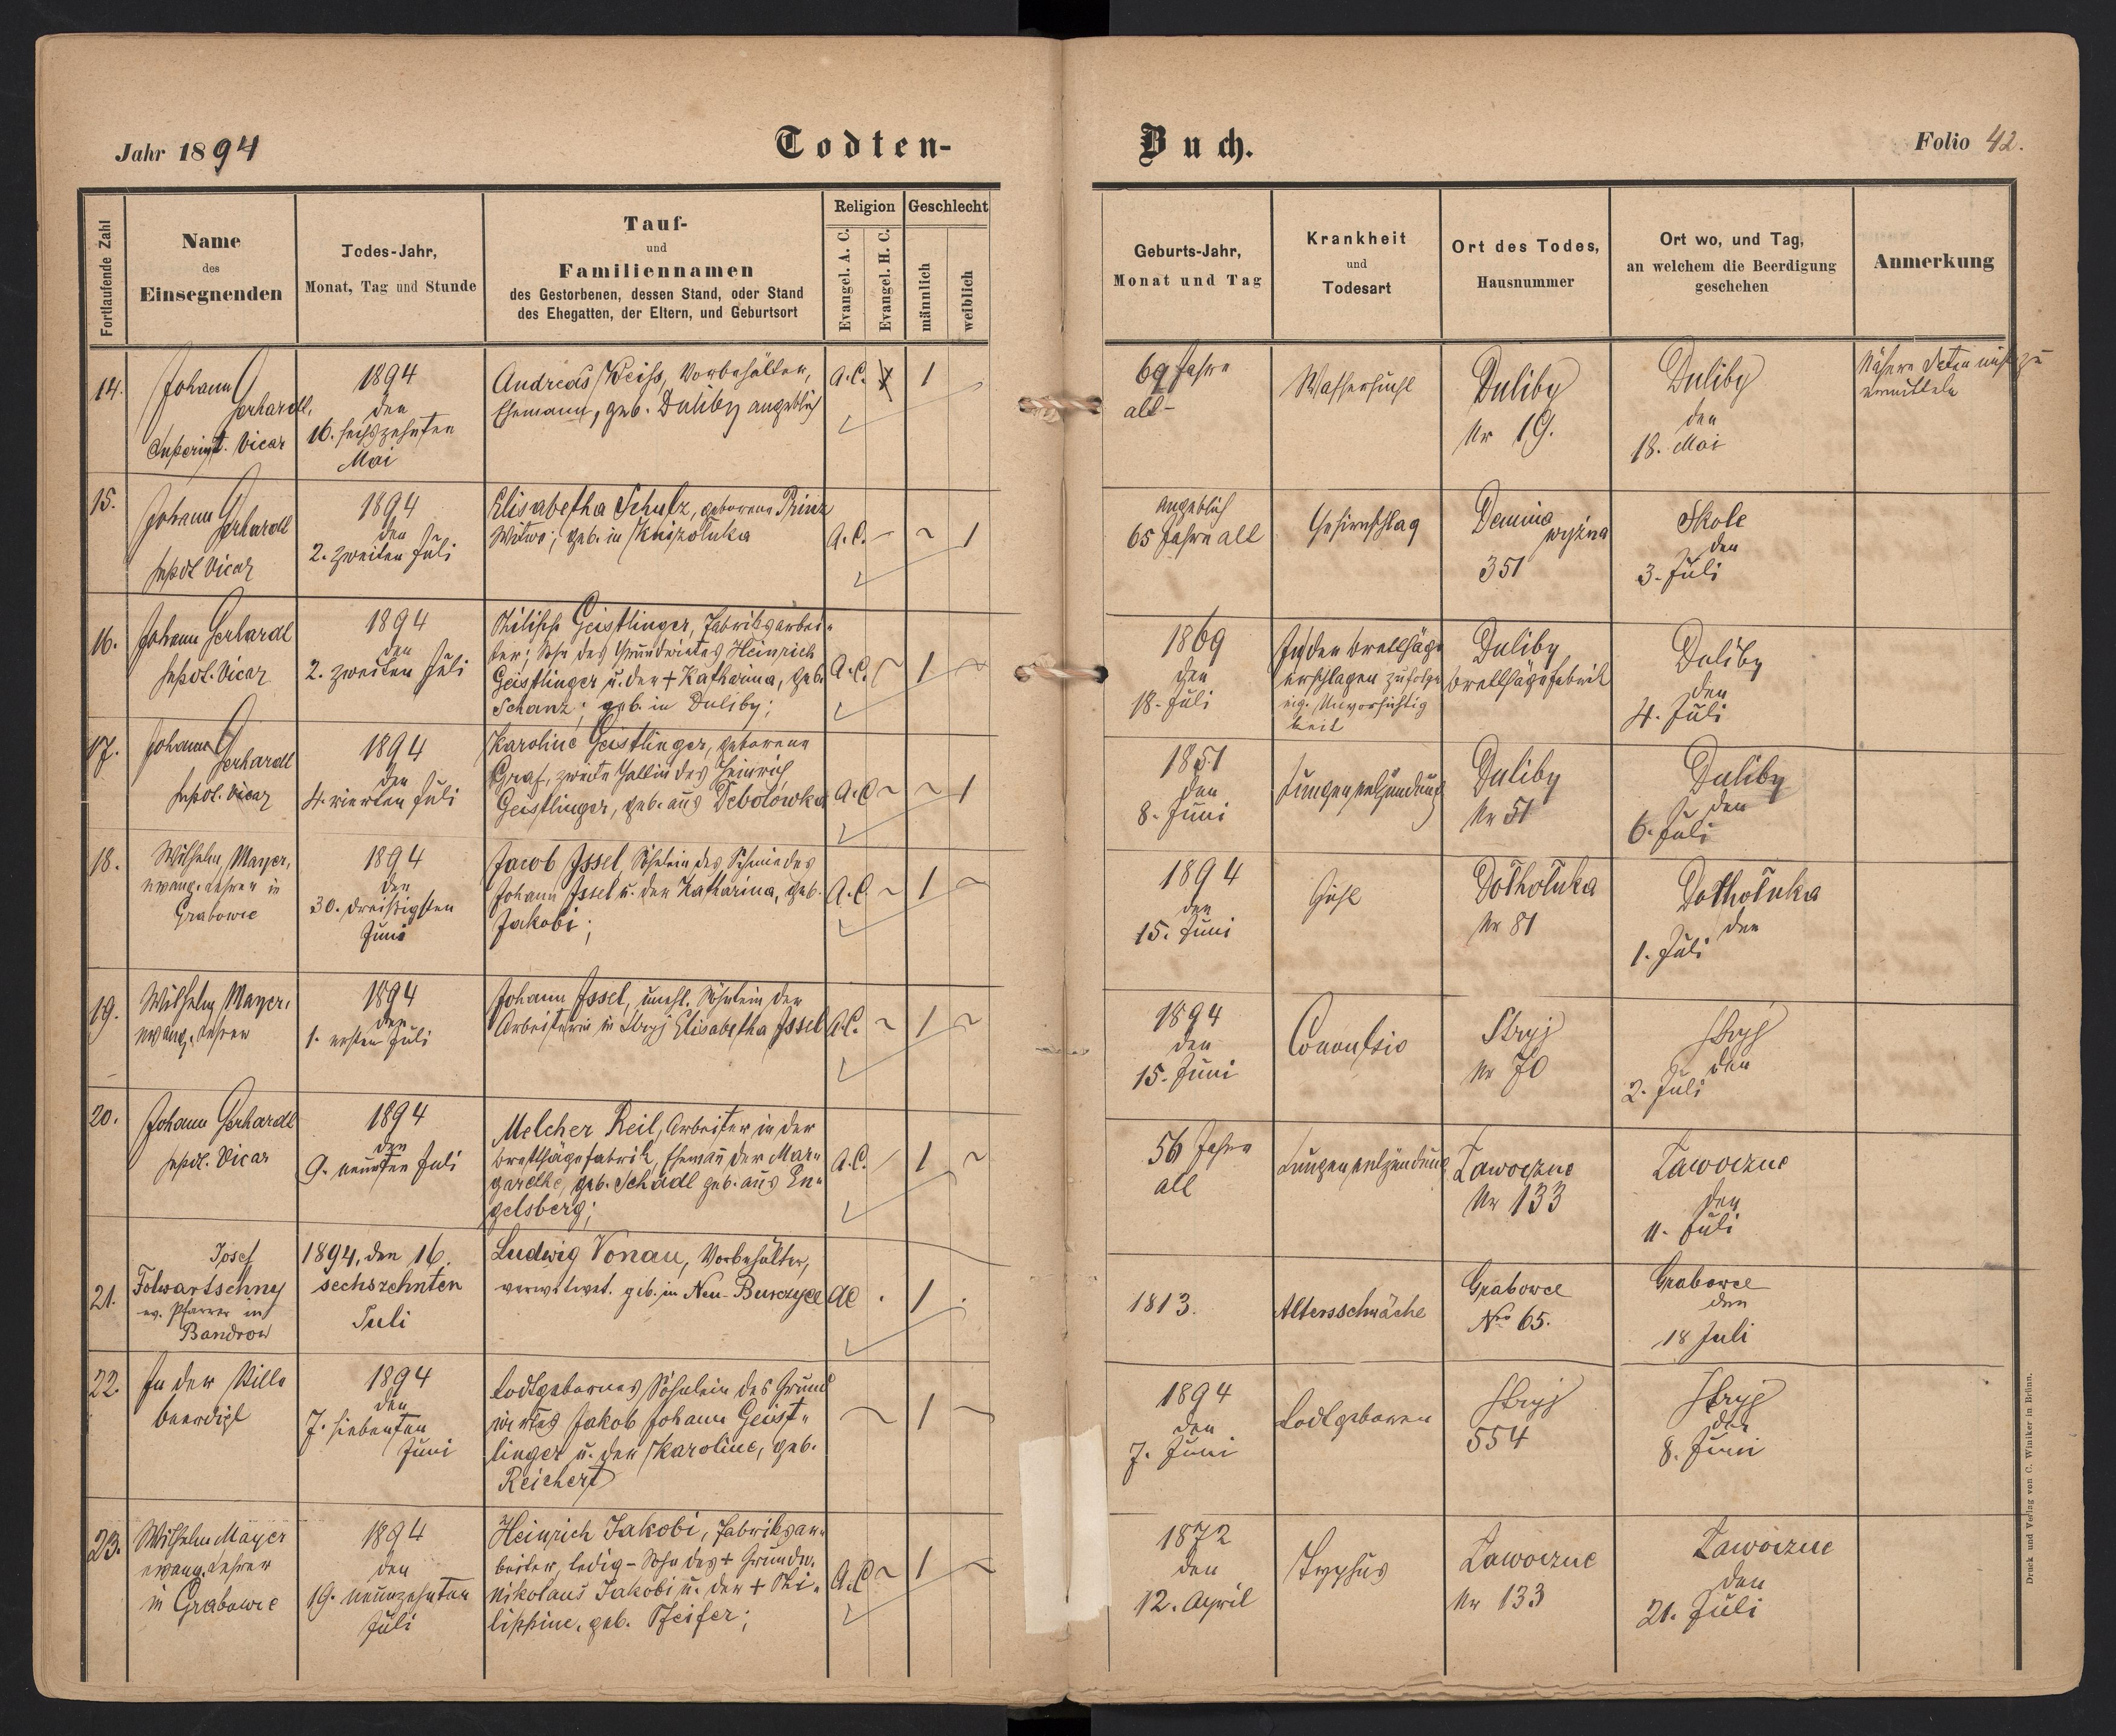 Jahr 1894
Todten-
Buch.
Folio 42.
Fortlaufende Zahl
Name
des
Einsegnenden
Todes-Jahr,
Monat, Tag und Stunde
Tauf-
und
Familiennamen
des Gestorbenen, dessen Stand, oder Stand
des Ehegatten, der Eltern, und Geburtsort
Religion
Evangel. A. C.
Evangel. H. C.
Geschlecht
männlich
weiblich
Geburts-Jahr,
Monat und Tag
Krankheit
und
Todesart
Ort des Todes,
Hausnummer
Ort wo, und Tag,
an welchem die Beerdigung
geschehen
Anmerkung
14.
Johann
Gerhardt,
Vicar
1894
den
16. sechszehnten
Mai
Andreas Weiss, Vorbehälter,
Ehemann, geb. Duliby angeblich
A.C.
1
69 Jahre
alt
Wassersucht
Duliby
Nr 19.
Duliby
den
18. Mai
Nähere Daten nicht zu
ermitteln
15.
Johann
Gerhardt
Vicar
1894
den
2. zweiten Juli
Elisabetha Schulz, geborene Prinz
Witwe, geb. in
A.C. - ~ 1
angeblich
65 Jahre alt
Gehirnschlag
Demnia
wyżna
351
Skole
den
3. Juli
16.
Johann Gerhardt
Vicar
1894
den
2. zweiten Juli
Philipp Geistlinger, Fabriksarbei-
ter; Sohn des Grundwirtes Heinrich
Geistlinger u. der + Katharina, geb.
Schanz; geb. in Duliby;
A.C. ~ 1 ~
1869
den
18. Juli
In der Brettsäge
erschlagen zufolge
eig. Unvorsichtig
keit
Duliby
Brettsägefabrik
Duliby
den
4. Juli
17.
Johann
Gerhardt
Vicar
1894
den
4. vierten Juli
Karoline Geistlinger, geborene
Graf, zweite Gattin des Heinrich
Geistlinger, geb. aus Debolówka
A.C ~ ~ 1
1851
den
8. Juni
Lungenentzündung
Duliby
Nr 51
Duliby
den
6. Juli
18.
Wilhelm Mayer,
evang. Lehrer in
Grabowce
1894
den
30. dreißigsten
Juni
Jacob Issel, Söhnlein des Schmiedes
Johann Issel u. der Katharina, geb.
Jakobi;
A.C ~ 1 ~
1894
den
15. Juni
Dołhołuka
Nr 81
Dołhołuka
den
1. Juli
19.
Wilhelm Mayer,
evang. Lehrer
1894
den
1. ersten Juli
Johann Issel, unehl. Söhnlein der
Arbeiterin in Stryj Elisabetha Issel
A.C. ~ 1 ~
1894
den
15. Juni
Convulsio
Stryj
Nr 70
Stryj
den
2. Juli
20.
Johann Gerhardt
Vicar
1894
den
9. neunten Juli
Melcher Reil, Arbeiter in der
Brettsägefabrik, Ehemañ der Mar-
garethe, geb. Schädl geb. aus En-
gelsberg;
A.C. 1 ~
56 Jahre
alt
Lungenentzündung
Ławoczne
Nr 133
Ławoczne
den
11. Juli
21.
Josef
Folwartschny
ev. Pfarrer in
Bandrow
1894, den 16.
sechszehnten
Juli
Ludwig Vonau, Vorbehälter,
verwitwet. geb. in Neu-Burczyce
AC . 1 .
1813.
Altersschwäche
Grabowce
Nro 65.
Grabowce
den
18 Juli
22.
In der Stille
beerdigt
1894
den
7. siebenten
Juni
Todtgebornes Söhnlein des Grund
wirtes Jakob Johann Geist-
linger u. der Karoline, geb.
Reichert
~ 1 ~
1894
den
7. Juni
Todtgeboren
Stryj
554
Stryj
den
8. Juni
23.
Wilhelm Mayer
evang. Lehrer
in Grabowce
1894
den
19. neunzehnten
Juli
Heinrich Jakobi, Fabriksar-
beiter, ledig - Sohn des + Grundw.
Nikolaus Jakobi u. der + Phi-
lippine, geb. Pfeifer;
A.C ~ 1 ~
1872
den
12. April
Typhus
Ławoczne
Nr 133
Ławoczne
den
21. Juli
Druck und Verlag von C. Winiker in Brünn.